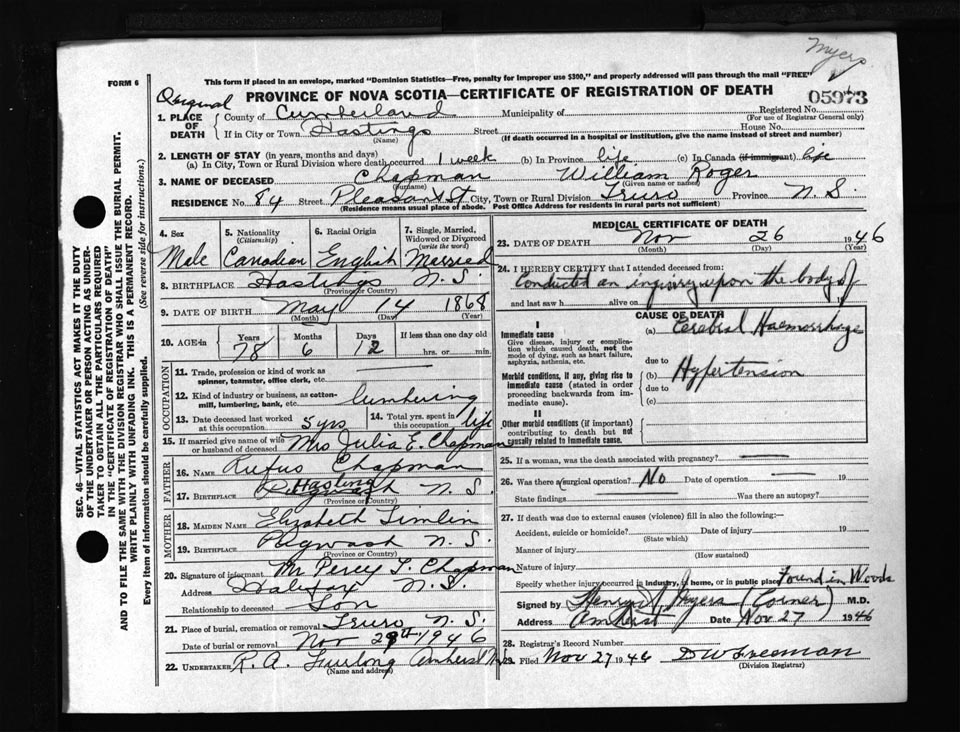 Myers
FORM 6
This form if placed in an envelope, marked "Dominion Statistics—Free, penalty for improper use $300," and properly addressed will pass through the mail "FREE"
Original
PROVINCE OF NOVA SCOTIA—CERTIFICATE OF REGISTRATION OF DEATH
05973
1. PLACE OF DEATH
County of Cumberland Municipality of Registered No.
(For use of Registrar General only)
If in City or Town Hastings Street House No.
(Name) (If death occurred in a hospital or institution, give the name instead of street and number)
2. LENGTH OF STAY (in years, months and days)
(a) In City, Town or Rural Division where death occurred 1 week (b) In Province life (c) In Canada (if immigrant) life
3. NAME OF DECEASED Chapman William Roger
(Surname) (Given name or names)
RESIDENCE No. 84 Street Pleasant St City, Town or Rural Division Truro Province N.S.
(Residence means usual place of abode. Post Office Address for residents in rural parts not sufficient)
4. Sex 5. Nationality (Citizenship) 6. Racial Origin 7. Single, Married, Widowed or Divorced (write the word)
Male Canadian English Married
8. BIRTHPLACE Hastings N.S.
(Province or Country)
9. DATE OF BIRTH May 14 1868
(Month) (Day) (Year)
10. AGE in Years Months Days If less than one day old
78 6 12 hrs. or min.
OCCUPATION
11. Trade, profession or kind of work as spinner, teamster, office clerk, etc.
12. Kind of industry or business, as cotton-mill, lumbering, bank, etc. lumbering
13. Date deceased last worked at this occupation 5 yrs 14. Total yrs. spent in this occupation life
15. If married give name of wife or husband of deceased Mrs Julia E. Chapman
FATHER
16. NAME Rufus Chapman
17. BIRTHPLACE Hastings N.S.
(Province or Country)
MOTHER
18. MAIDEN NAME Elizabeth Timlin
19. BIRTHPLACE Pugwash N.S.
(Province or Country)
20. Signature of informant Mr Percy T. Chapman
Address Halifax N.S.
Relationship to deceased Son
21. Place of burial, cremation or removal Truro N.S.
Date of burial or removal Nov 29th 1946
22. UNDERTAKER R. A. Furlong Amherst N.S.
(Name and address)
MEDICAL CERTIFICATE OF DEATH
23. DATE OF DEATH Nov 26 1946
(Month) (Day) (Year)
24. I HEREBY CERTIFY that I attended deceased from:
Conducted an inquiry upon the body of
and last saw h alive on 19
CAUSE OF DEATH
I
Immediate cause (a) Cerebral Haemorrhage
Give disease, injury or complication which caused death, not the mode of dying, such as heart failure, asphyxia, asthenia, etc.
due to
Morbid conditions, if any, giving rise to immediate cause (stated in order proceeding backwards from immediate cause). (b) Hypertension
due to
(c)
II
Other morbid conditions (if important) contributing to death but not causally related to immediate cause.
25. If a woman, was the death associated with pregnancy?
26. Was there a surgical operation? No Date of operation 19
State findings Was there an autopsy?
27. If death was due to external causes (violence) fill in also the following:
Accident, suicide or homicide? Date of injury 19
(State which)
Manner of injury
(How sustained)
Nature of injury
Specify whether injury occurred in industry, in home, or in public place Found in Woods
Signed by Henry Myers (Corner) M.D.
Address Amherst Date Nov 27 1946
28. Registrar's Record Number
29. Filed Nov 27 1946 D W Freeman
(Division Registrar)
SEC. 46—VITAL STATISTICS ACT MAKES IT THE DUTY
OF THE UNDERTAKER OR PERSON ACTING AS UNDER-
TAKER TO OBTAIN ALL THE PARTICULARS REQUIRED
IN THE "CERTIFICATE OF REGISTRATION OF DEATH"
AND TO FILE THE SAME WITH THE DIVISION REGISTRAR WHO SHALL ISSUE THE BURIAL PERMIT.
WRITE PLAINLY WITH UNFADING INK. THIS IS A PERMANENT RECORD.
Every item of information should be carefully supplied. (See reverse side for instructions.)